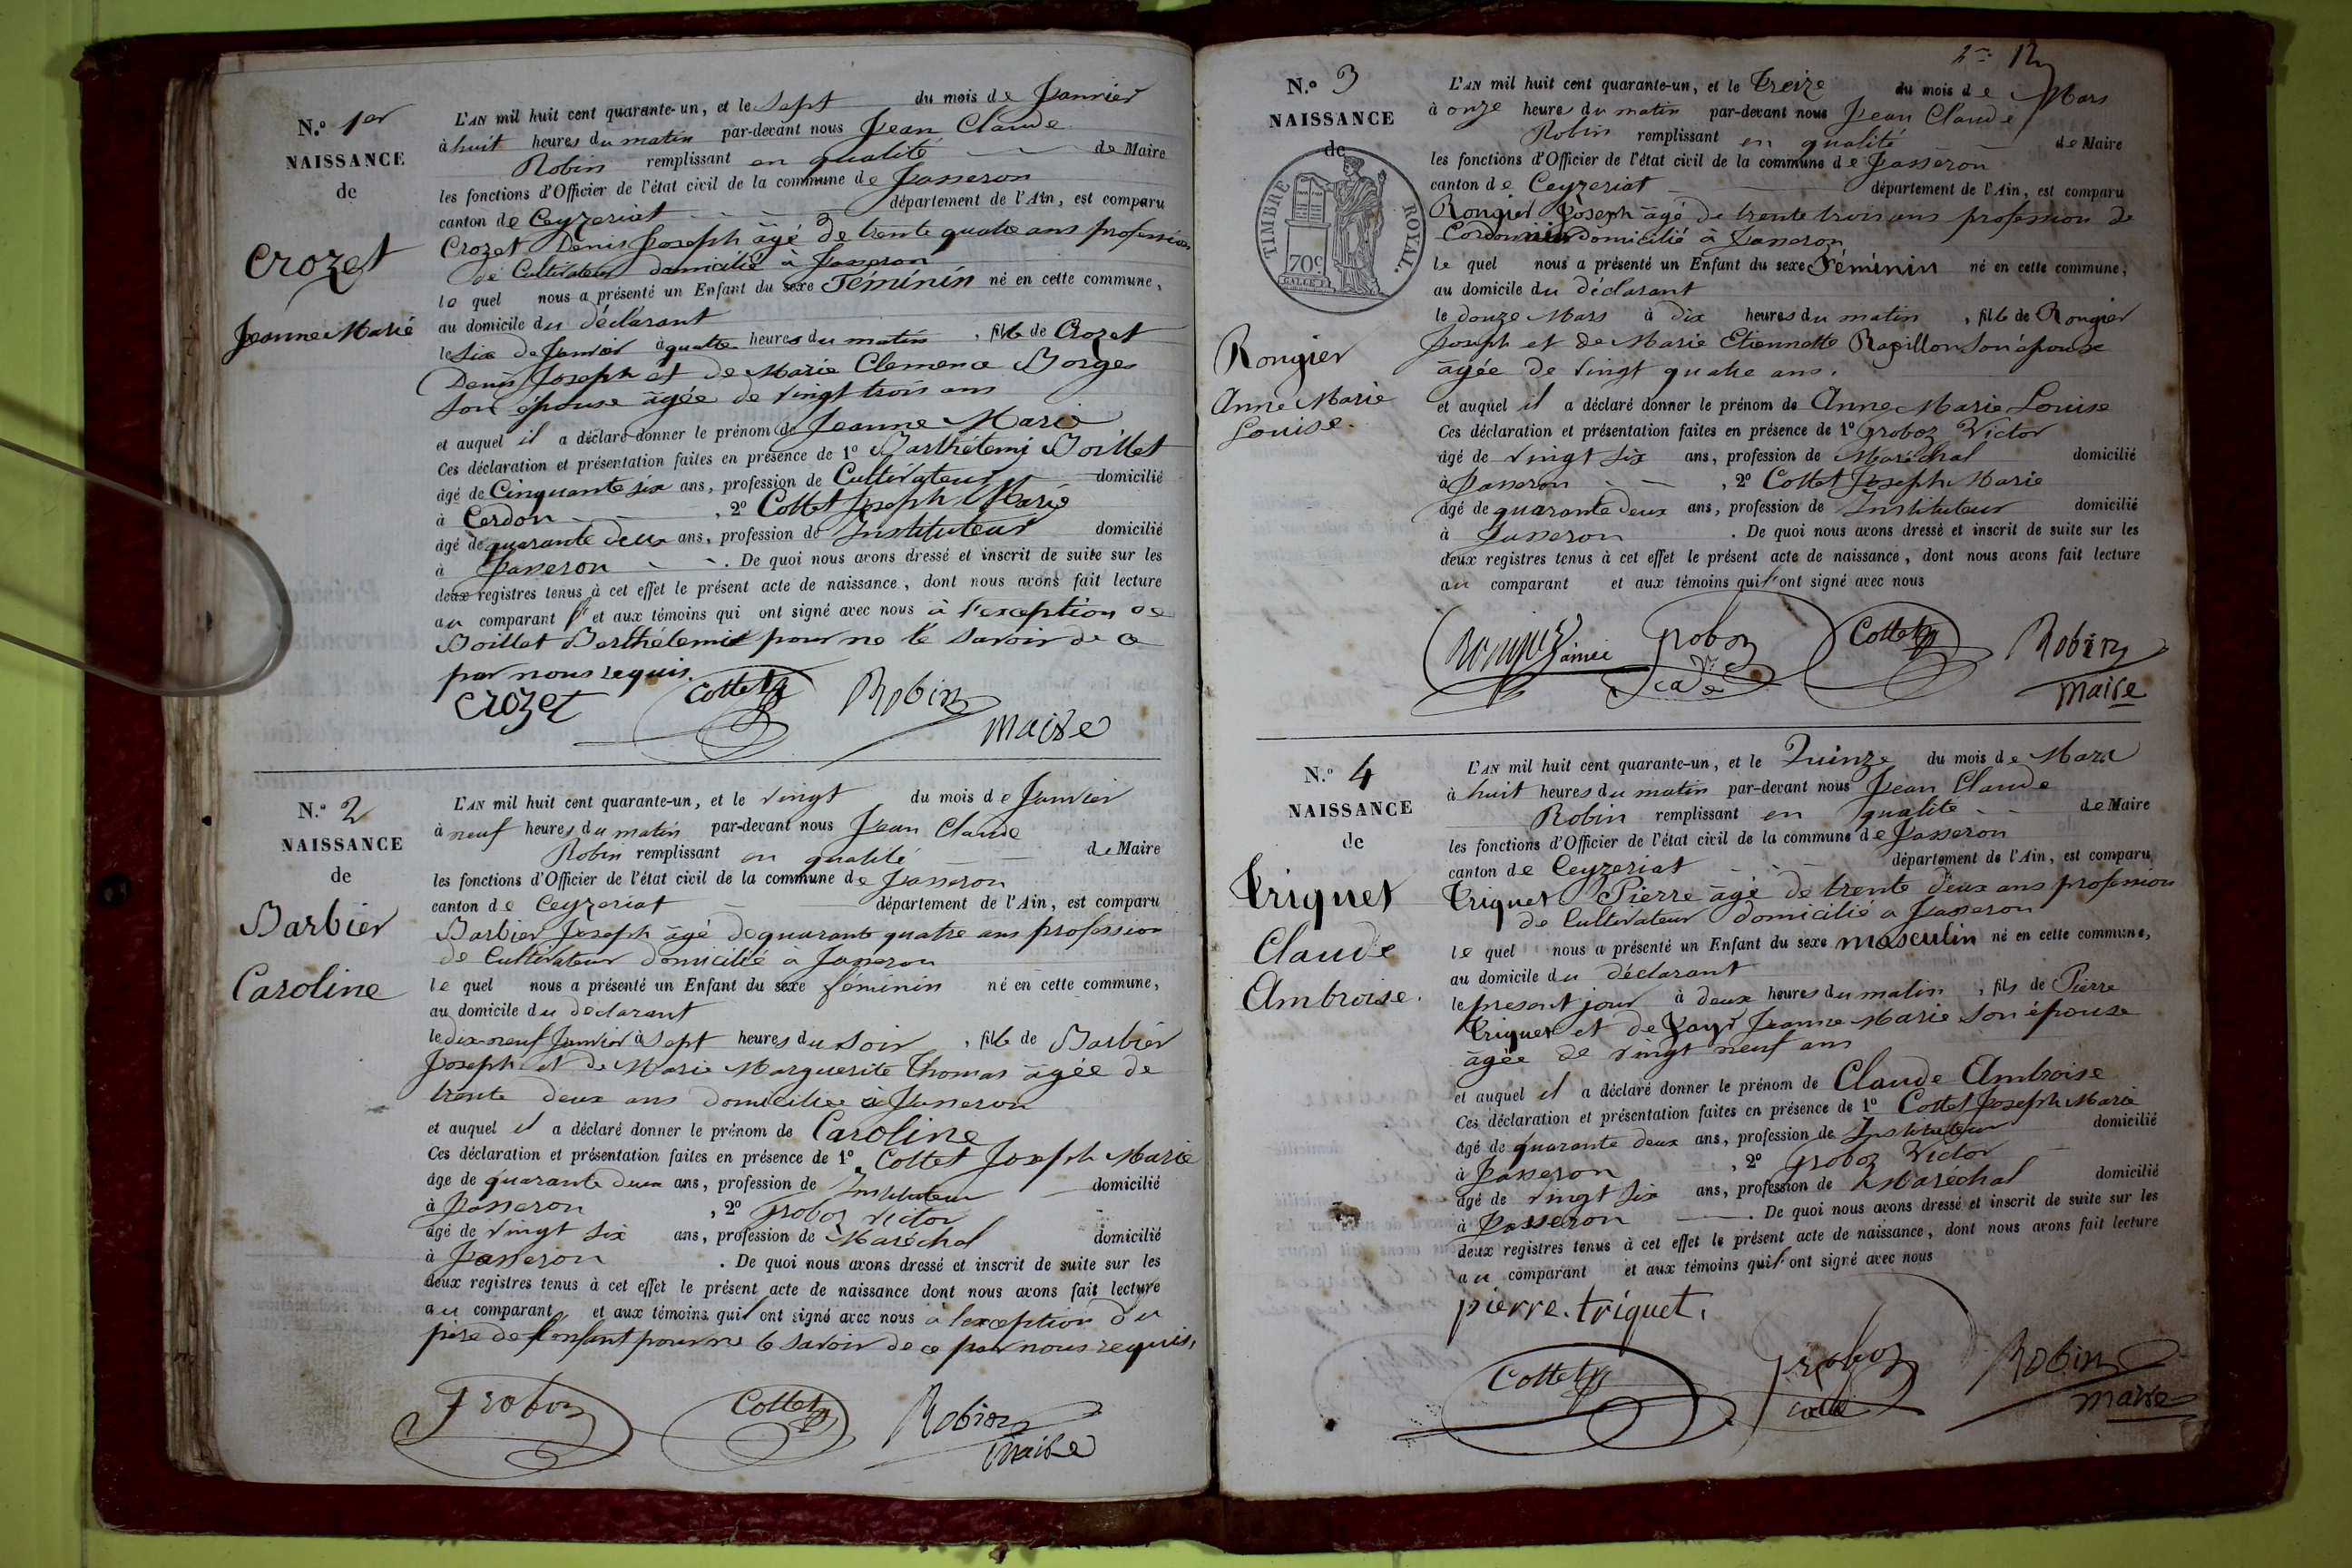 N.° 1er
NAISSANCE
de
Crozet
Jeanne Marie
L'AN mil huit cent quarante-un, et le Sept du mois de Janvier
à huit heures du matin par-devant nous Jean Claude
Robin remplissant en qualité de Maire
les fonctions d'Officier de l'état civil de la commune de Jasseron
canton de Ceyzeriat département de l'Ain, est comparu
Crozet Denis Joseph âgé de trente quatre ans profession
de Cultivateur domicilié à Jasseron
le quel nous a présenté un Enfant du sexe Féminin né en cette commune,
au domicile du déclarant
le Six de Janvier à quatre heures du matin, fille de Crozet
Denis Joseph et de Marie Clemence Borges
son épouse âgée de vingt trois ans
et auquel il a déclaré donner le prénom de Jeanne Marie
Ces déclaration et présentation faites en présence de 1° Barthélemi Boillet
âgé de Cinquante six ans, profession de Cultivateur domicilié
à Cerdon, 2° Cottet Joseph Marie
âgé de quarante deux ans, profession de Instituteur domicilié
à Jasseron. De quoi nous avons dressé et inscrit de suite sur les
deux registres tenus à cet effet le présent acte de naissance, dont nous avons fait lecture
au comparant et aux témoins qui ont signé avec nous à l'exception de
Boillet Berthélemi pour ne le savoir de ce
par nous requis.
Crozet Cottet Robin
maire
N.° 2
NAISSANCE
de
Barbier
Caroline
L'AN mil huit cent quarante-un, et le vingt du mois de Janvier
à neuf heures du matin par-devant nous Jean Claude
Robin remplissant en qualité de Maire
les fonctions d'Officier de l'état civil de la commune de Jasseron
canton de Ceyzeriat département de l'Ain, est comparu
Barbier Joseph âgé de quarante quatre ans profession
de Cultivateur domicilié à Jasseron
le quel nous a présenté un Enfant du sexe féminin né en cette commune,
au domicile du déclarant
le dix-neuf Janvier à Sept heures du soir, fille de Barbier
Joseph et de Marie Marguerite Thomas âgée de
trente deux ans domiciliée à Jasseron
et auquel il a déclaré donner le prénom de Caroline
Ces déclaration et présentation faites en présence de 1° Cottet Joseph Marie
âge de quarante deux ans, profession de Instituteur domicilié
à Jasseron, 2° Groboz Victor
âgé de vingt six ans, profession de Maréchal domicilié
à Jasseron. De quoi nous avons dressé et inscrit de suite sur les
deux registres tenus à cet effet le présent acte de naissance dont nous avons fait lecture
au comparant et aux témoins qui ont signé avec nous à l'exception du
père de l'enfant pour ne le savoir de ce par nous requis,
Groboz Cottet Robin
maire
N.° 3
NAISSANCE
de
TIMBRE ROYAL.
70c
Rongier
Anne Marie
Louise.
L'AN mil huit cent quarante-un, et le Treize du mois de Mars
à onze heures du matin par-devant nous Jean Claude
Robin remplissant en qualité de Maire
les fonctions d'Officier de l'état civil de la commune de Jasseron
canton de Ceyzeriat département de l'Ain, est comparu
Rongier Joseph âgé de trente trois ans profession de
Cordonnier domicilié à Jasseron
le quel nous a présenté un Enfant du sexe Féminin né en cette commune,
au domicile du déclarant
le douze Mars à dix heures du matin, fille de Rongier
Joseph et de Marie Etiennette Rapillon son épouse
âgée de vingt quatre ans.
et auquel il a déclaré donner le prénom de Anne Marie Louise
Ces déclaration et présentation faites en présence de 1° Groboz Victor
âgé de vingt six ans, profession de Maréchal domicilié
à Jasseron, 2° Cottet Joseph Marie
âgé de quarante deux ans, profession de Instituteur domicilié
à Jasseron. De quoi nous avons dressé et inscrit de suite sur les
deux registres tenus à cet effet le présent acte de naissance, dont nous avons fait lecture
au comparant et aux témoins qui ont signé avec nous
Rongier Groboz Cottet Robin
maire
N.° 4
NAISSANCE
de
Triquet
Claude
Ambroise.
L'AN mil huit cent quarante-un, et le Quinze du mois de Mars
à huit heures du matin par-devant nous Jean Claude
Robin remplissant en qualité de Maire
les fonctions d'Officier de l'état civil de la commune de Jasseron
canton de Ceyzeriat département de l'Ain, est comparu
Triquet Pierre âgé de trente deux ans profession
de Cultivateur domicilié à Jasseron
le quel nous a présenté un Enfant du sexe masculin né en cette commune,
au domicile du déclarant
le présent jour à deux heures du matin, fils de Pierre
Triquet et de Jeanne Marie son épouse
âgée de vingt neuf ans
et auquel il a déclaré donner le prénom de Claude Ambroise
Ces déclaration et présentation faites en présence de 1° Cottet Joseph Marie
âgé de quarante deux ans, profession de Instituteur domicilié
à Jasseron, 2° Groboz Victor
âgé de vingt six ans, profession de Maréchal domicilié
à Jasseron. De quoi nous avons dressé et inscrit de suite sur les
deux registres tenus à cet effet le présent acte de naissance, dont nous avons fait lecture
au comparant et aux témoins qui ont signé avec nous
pierre. triquet.
Cottet Groboz Robin
maire